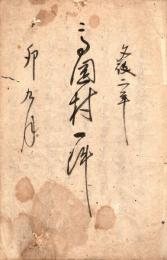 文政二年
村一件
卯九月